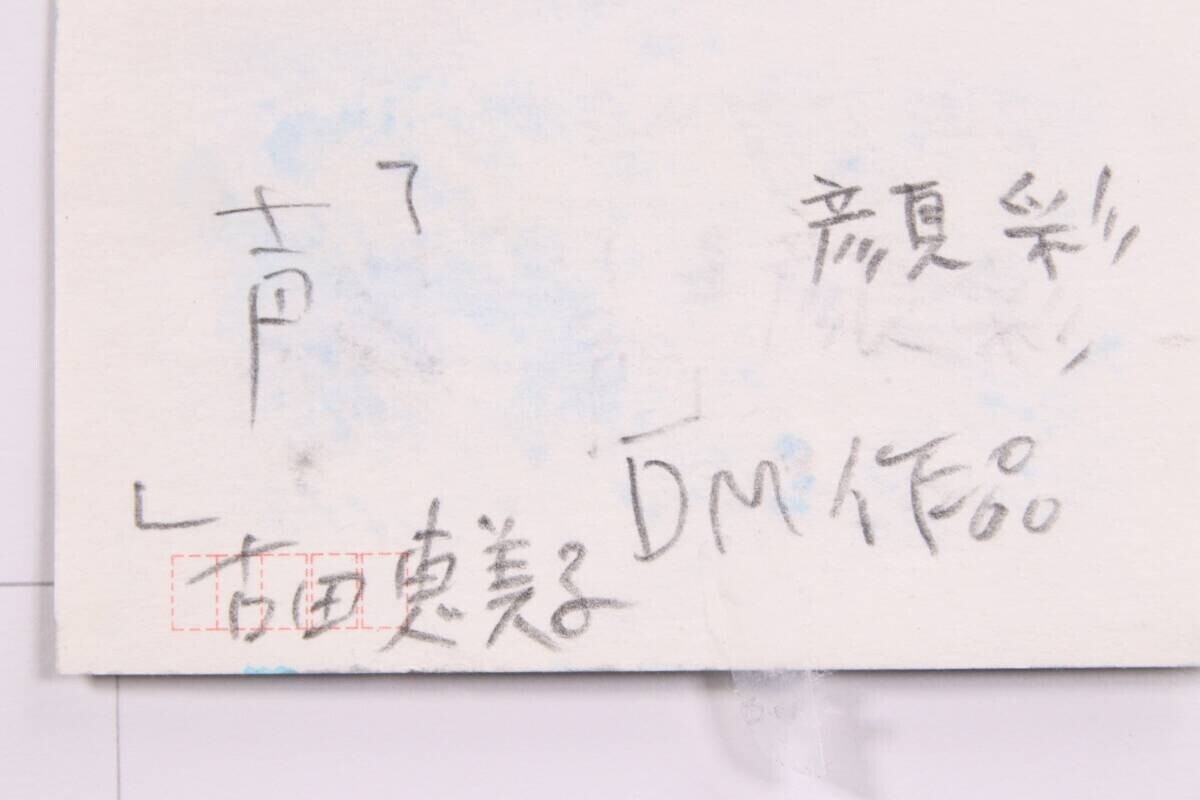 顔彩
「声」
DM作品
古田恵美子